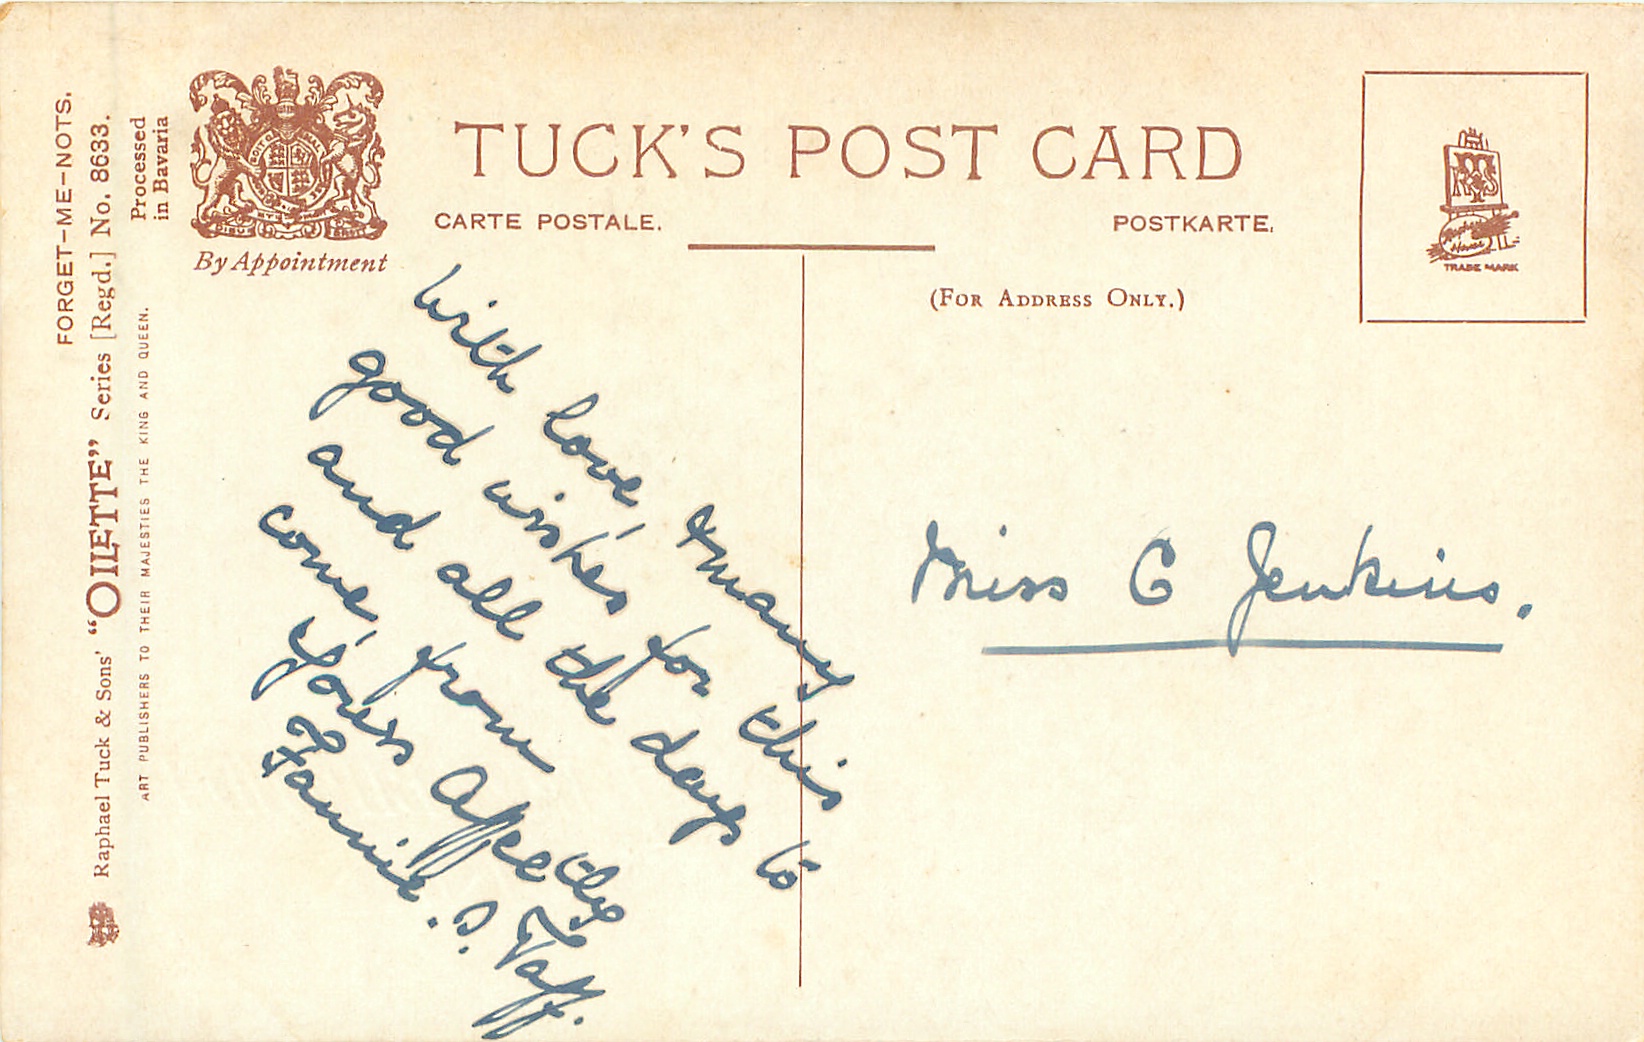 FORGET-ME-NOTS.
Raphael Tuck & Sons' "OILETTE" Series [Regd.] No. 8633.
Processed
in Bavaria
ART PUBLISHERS TO THEIR MAJESTIES THE KING AND QUEEN.
By Appointment
TUCK'S POST CARD
CARTE POSTALE.
POSTKARTE.
(FOR ADDRESS ONLY.)
TRADE MARK
With love, & many
good wishes for this
and all the days to
come, from
Yours Affectly
Fannie. S. Taff.
Miss C Jenkins.